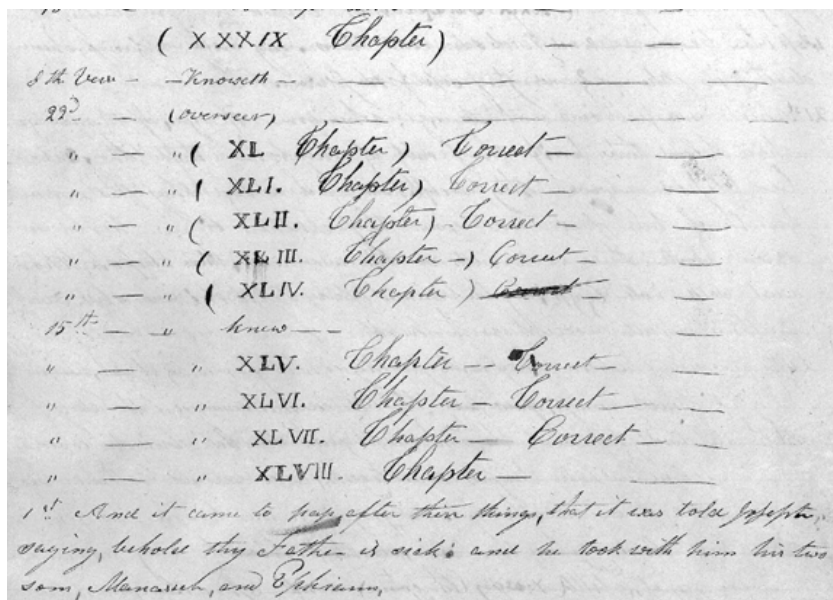 ( XXXIX Chapter)
8th Verse — — Knoweth —
22d — — (overseer)
" — " ( XL Chapter) Correct —
" — " ( XLI. Chapter) Correct —
" — " ( XLII. Chapter) Correct —
" — " ( XLIII. Chapter –) Correct —
" — " ( XLIV. Chapter )
15th — — " knew — —
" — " XLV. Chapter — Correct —
" — " XLVI. Chapter – Correct —
" — " XLVII. Chapter — Correct —
" — " XLVIII. Chapter —
1st And it came to pass after these things, that it was told Joseph,
saying, behold thy Father is sick: and he took with him his two
sons, Manaseh, and Ephraim,